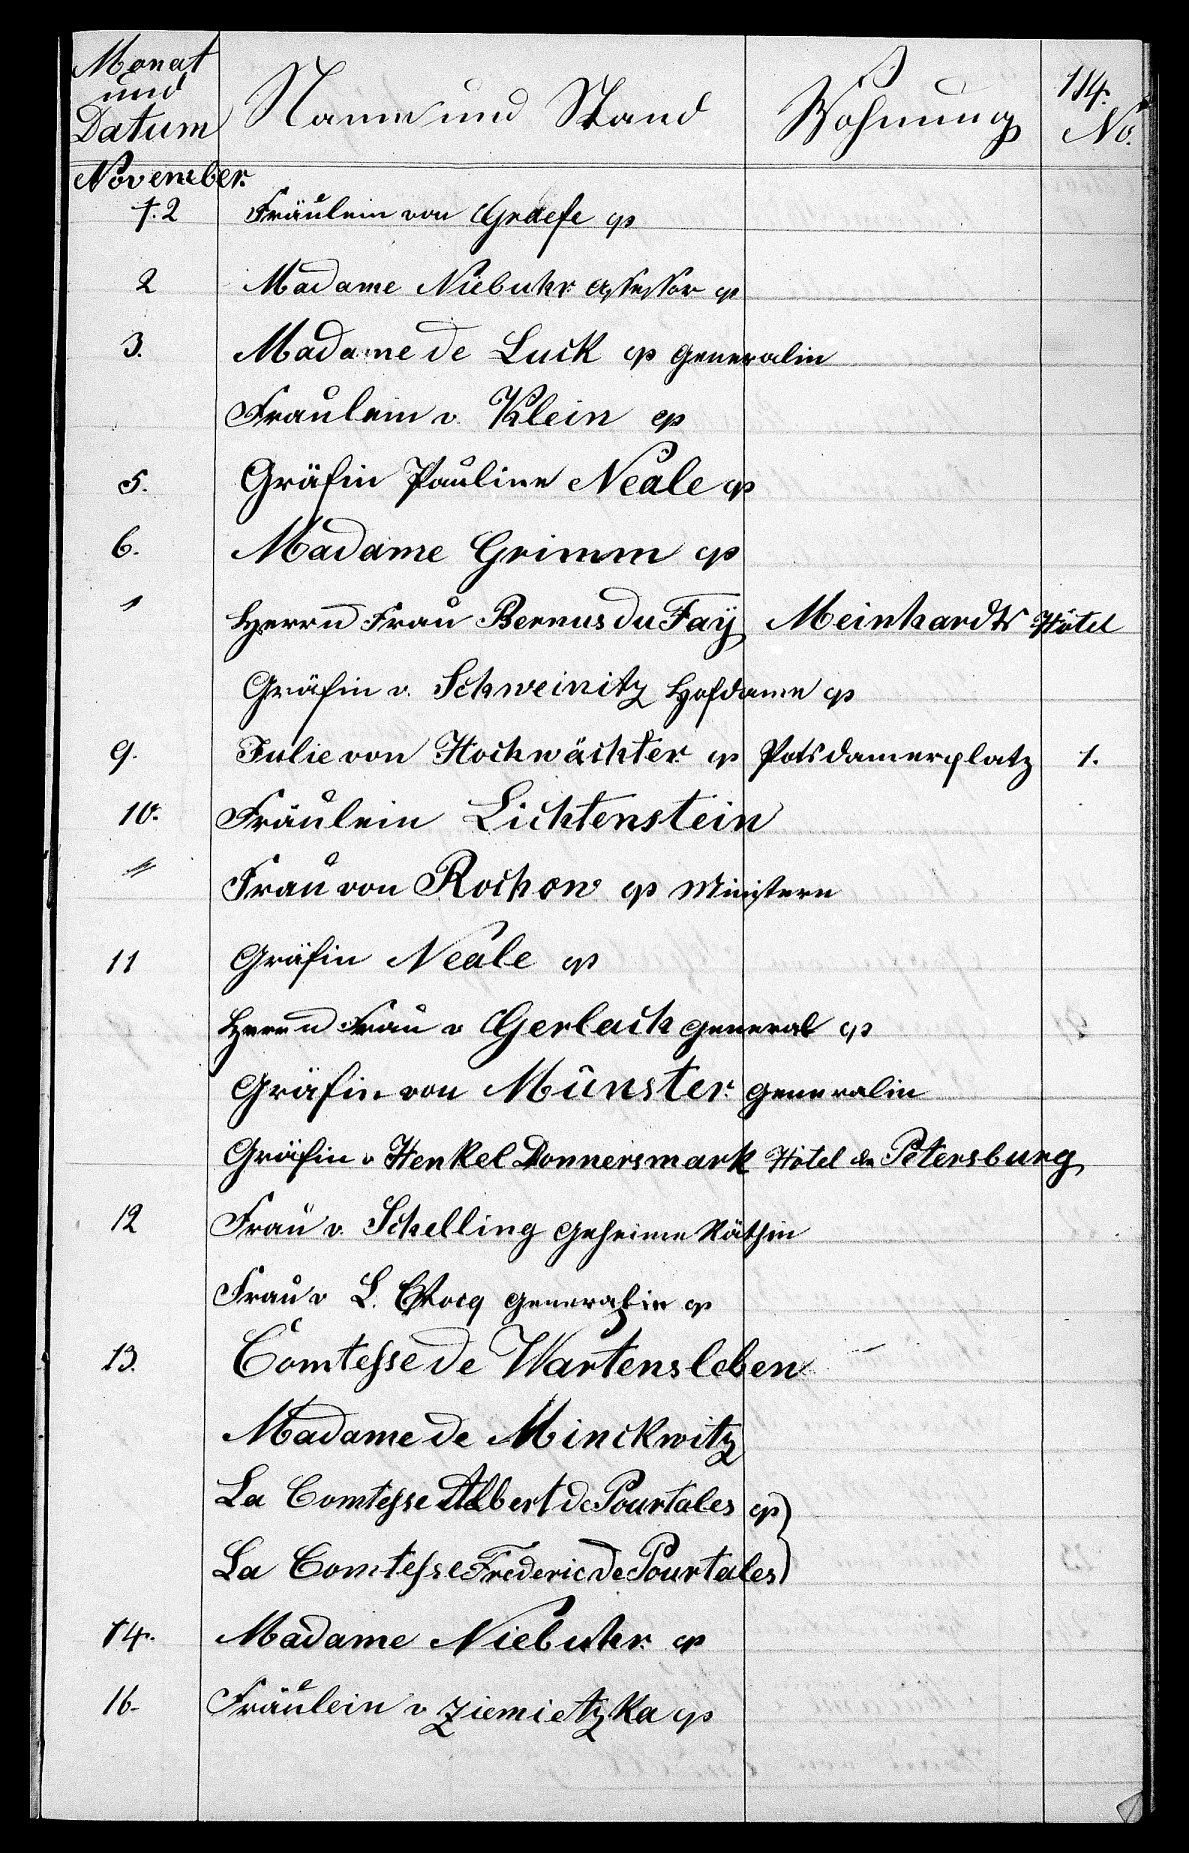 114.
Monat und Datum Name und Stand Wohnung No.
November.
1. 2 Fräulein von Graefe cp
2 Madame Niebuhr Assessor cp
3. Madame de Luck cp Generalin
Fraulein v. Klein cp
5. Gräfin Pauline Neale cp
6. Madame Grimm cp
Herrn u Frau Bernus du Faÿ Meinhardts Hôtel
Gräfin v. Schweinitz Hofdame cp
9. Julie von Hochwächter cp Potsdamerplatz 1.
10. Fräulein Lichtenstein
" Frau von Rochow cp Ministern
11 Gräfin Neale cp
Herrn u Frau v Gerlach General cp
Gräfin von Münster Generalin
Gräfin v Henkel Donnersmark Hôtel de Petersburg
12 Frau v. Schelling Geheime Räthin
Frau v L. Cocq Generalin cp
13. Comtesse de Wartensleben
Madame de Minckwitz
La Comtesse Albert de Pourtales cp)
La Comtesse Frederic de Pourtales)
14. Madame Niebuhr cp
16. Fräulein v Ziemietzka cp